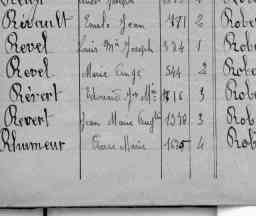 Révault Emile Jean 1871 2 Robe
Revel Louis Mie Joseph 334 1 Rob
Revel Marie Ange 544 2 Robe
Révert Edouard Je Mie 1816 3 Robe
Revert Jean Marie 1378 3 Rob
Rhumeur Pierre Marie 1635 4 Rob